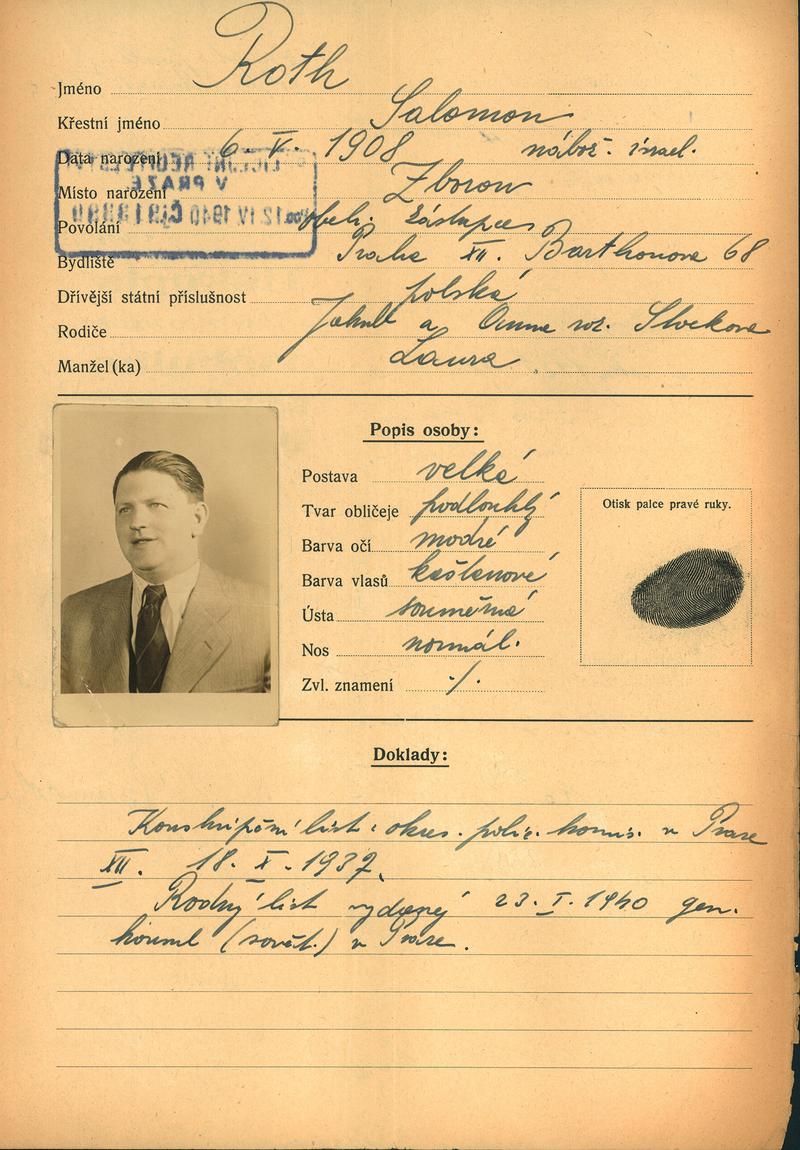 Jméno Roth
Křestní jméno Salomon
Data narození 6. V. 1908 nábož. israel.
Místo narození Zborow
Povolání obch. zástupce
Bydliště Praha XII. Barthonova 68
Dřívější státní příslušnost polská
Rodiče Jakub a Anna roz.
Manžel(ka) Laura
POLICEJNÍ ŘEDITELSTVÍ
V PRAZE
12 IV 1940
Popis osoby:
Postava velká
Tvar obličeje podlouhlý
Barva očí modré
Barva vlasů kaštanové
Ústa souměrná
Nos normál.
Zvl. znamení ./.
Otisk palce pravé ruky.
Doklady:
Konskripční list: okres. polic. komis. v Praze
XII. 18. X. 1937.
Rodný list vydaný 23. I. 1940 gen.
(sovět.) v Praze.